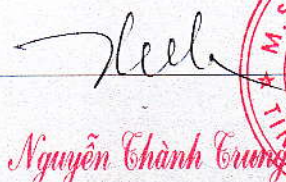 M.S
TỈN
Nguyễn Thành Trung